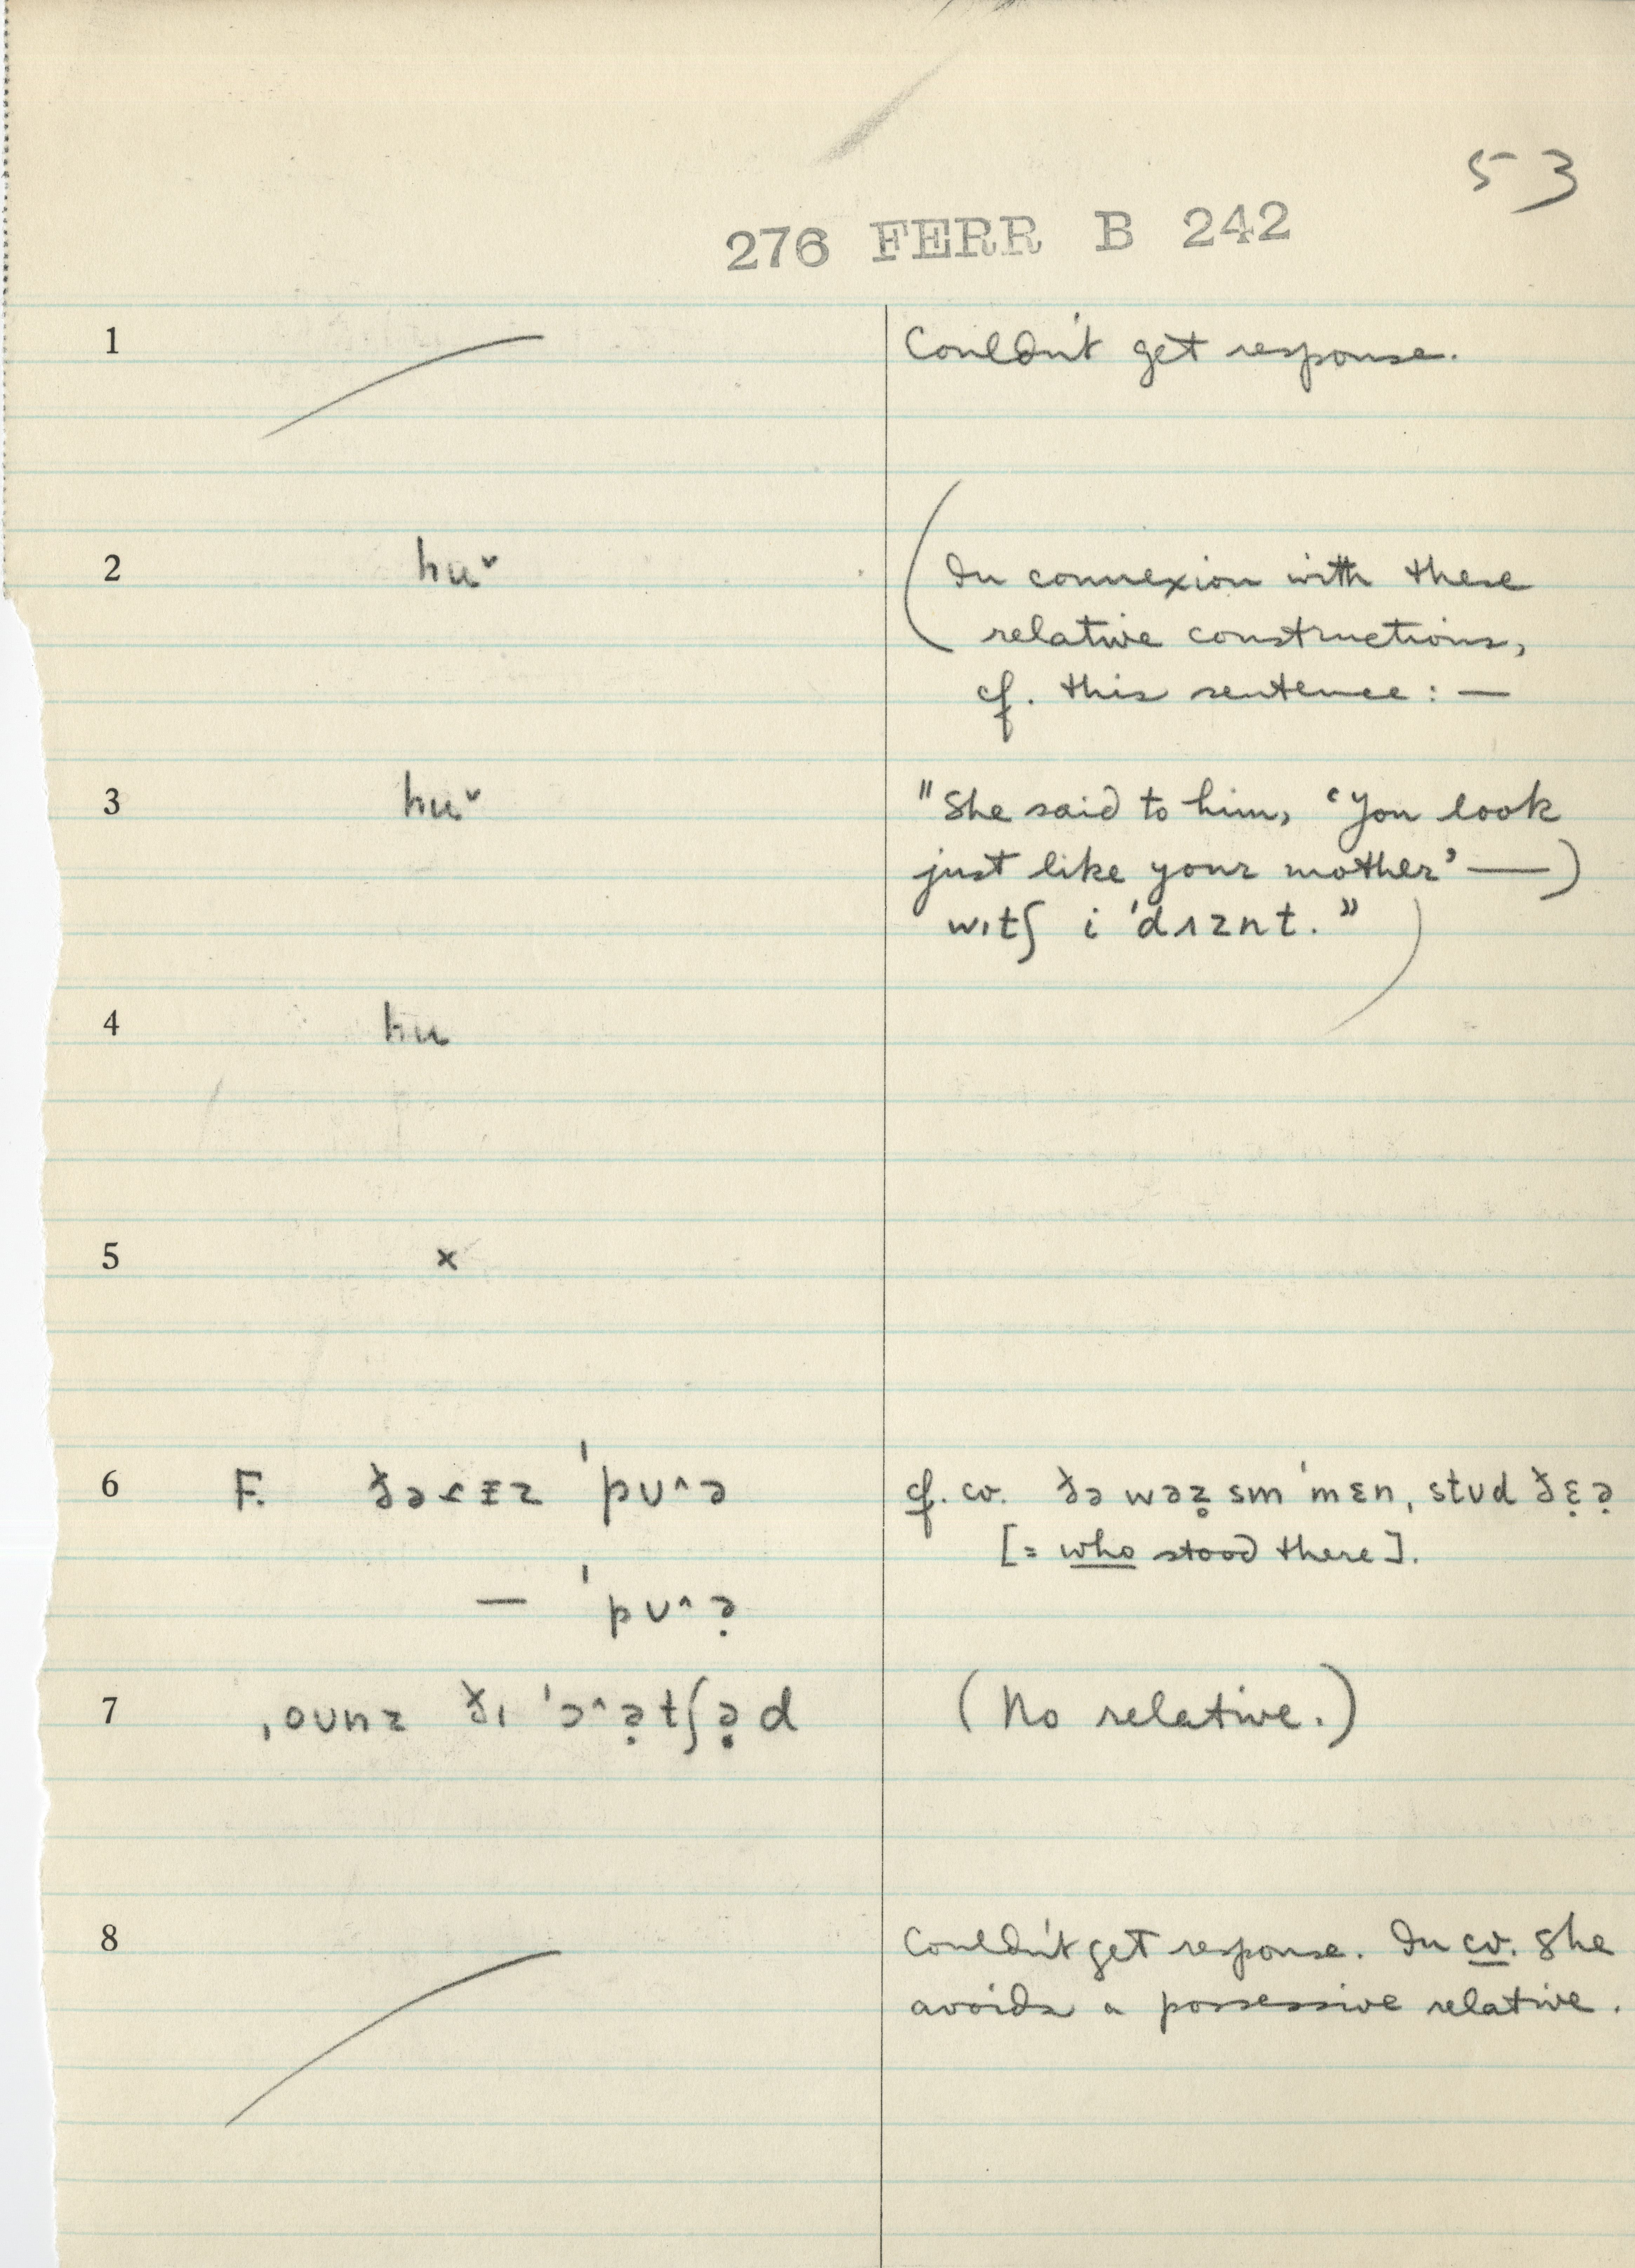 53
276 FERR B 242
1 Couldn't get response.
2 hu˅ (In connexion with these
relative constructions,
cf. this sentence: —
3 hu˅ "She said to him, 'You look
just like your mother' —)
wɪtʃ i ˈdʌznt.")
4 hu
5 x
6 F. ðə ɪz ˈpʊ^ə cf. cv. ðə wəz̥ sm ˈmɛn, stʊd ðɛ̣ə̣
[= who stood there].
— ˈpʊ^ə̣
7 ˌoʊnz ðɪ ˈɔ^ə̣tʃə̣d (No relative.)
8 Couldn't get response. In cv. she
avoids a possessive relative.